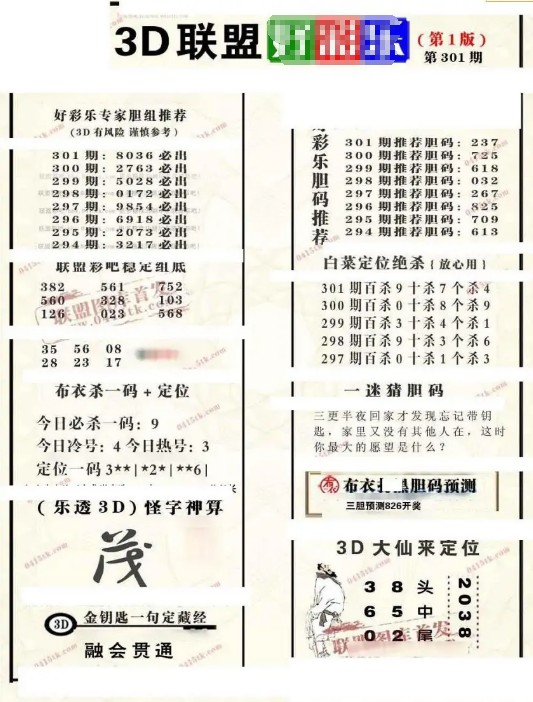 3D联盟好彩乐
(第1版)
第301期
好彩乐专家胆组推荐
(3D有风险 谨慎参考)
301期: 8036必出
300期: 2763必出
299期: 5028必出
298期: 0172必出
297期: 9854必出
296期: 6918必出
295期: 2073必出
294期: 3217必出
联盟彩吧稳定组底
382 561 752
560 328 103
126 023 568
35 56 08
28 23 17
布衣杀一码+定位
今日必杀一码: 9
今日冷号: 4今日热号: 3
定位一码3**|*2*|**6|
(乐透3D)怪字神算
茂
3D 金钥匙一句定藏经
融会贯通
彩乐胆码推荐
301期推荐胆码: 237
300期推荐胆码: 725
299期推荐胆码: 618
298期推荐胆码: 032
297期推荐胆码: 267
296期推荐胆码: 825
295期推荐胆码: 709
294期推荐胆码: 613
白菜定位绝杀{放心用}
301期百杀9十杀7个杀4
300期百杀0十杀8个杀9
299期百杀3十杀4个杀1
298期百杀9十杀3个杀6
297期百杀0十杀1个杀3
一迷猜胆码
三更半夜回家才发现忘记带钥
匙,家里又没有其他人在,这时
你最大的愿望是什么?
布衣 胆码预测
三胆预测826开奖
3D大仙来定位
3 8 头
6 5 中
0 2 尾
2038
联盟图库首发
0415tk.com